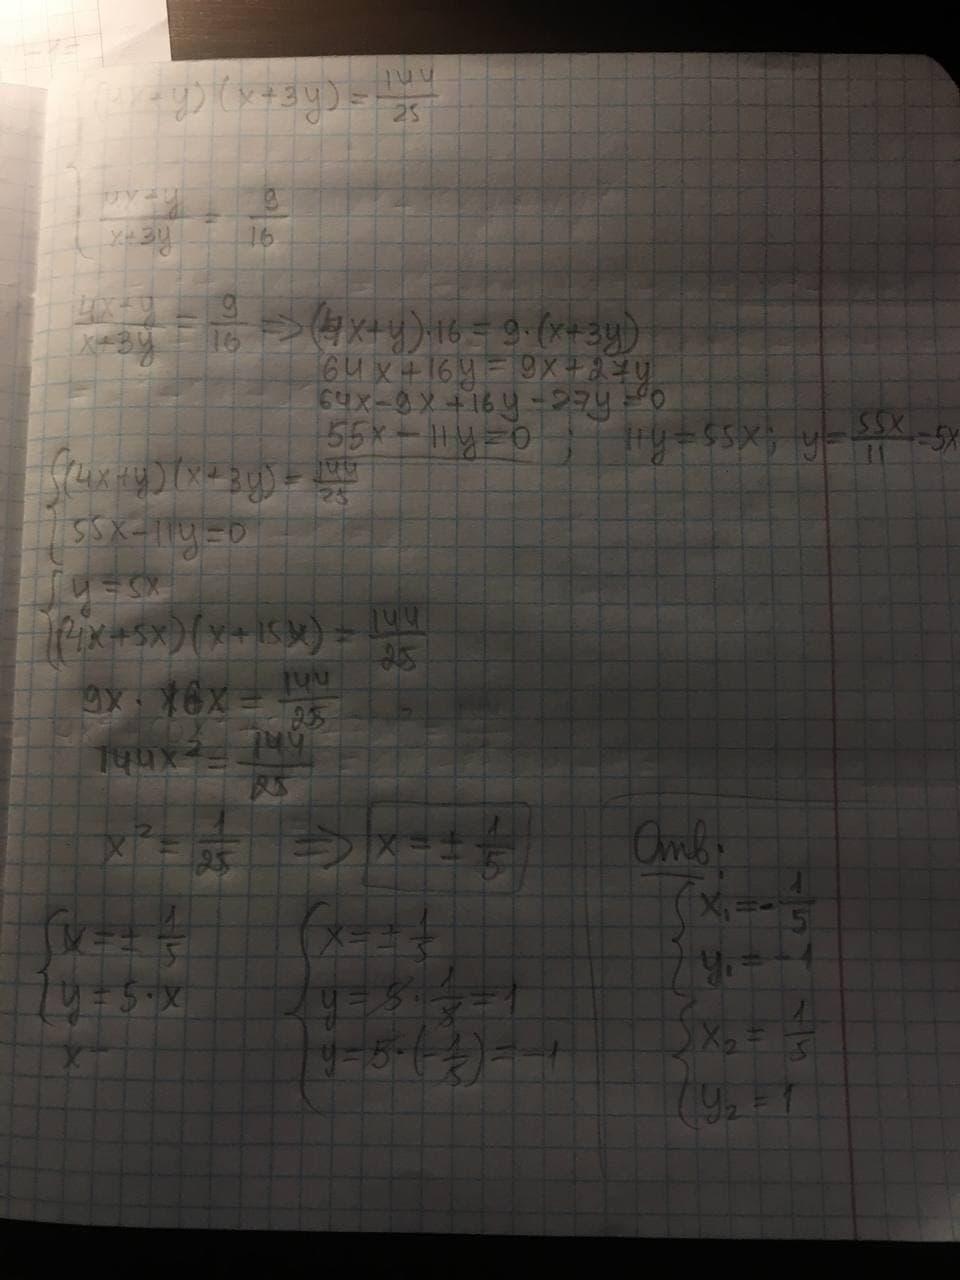 (4x+y)(x+3y) = 144/25
(4x+y)/(x+3y) = 9/16
(4x+y)/(x+3y) = 9/16 => (4x+y)·16 = 9·(x+3y)
64x+16y = 9x+27y
64x-9x+16y-27y=0
55x-11y=0 ; 11y=55x; y=55x/11=5x
{(4x+y)(x+3y) = 144/25
55x-11y=0
{y=5x
(4x+5x)(x+15x) = 144/25
9x·16x = 144/25
144x² = 144/25
x² = 1/25 => x = ± 1/5
{x = ± 1/5
y = 5·x
x-
{x = ± 1/5
y = 5·1/5 = 1
y = 5·(-1/5) = -1
Отв:
{x₁ = -1/5
y₁ = -1
{x₂ = 1/5
y₂ = 1